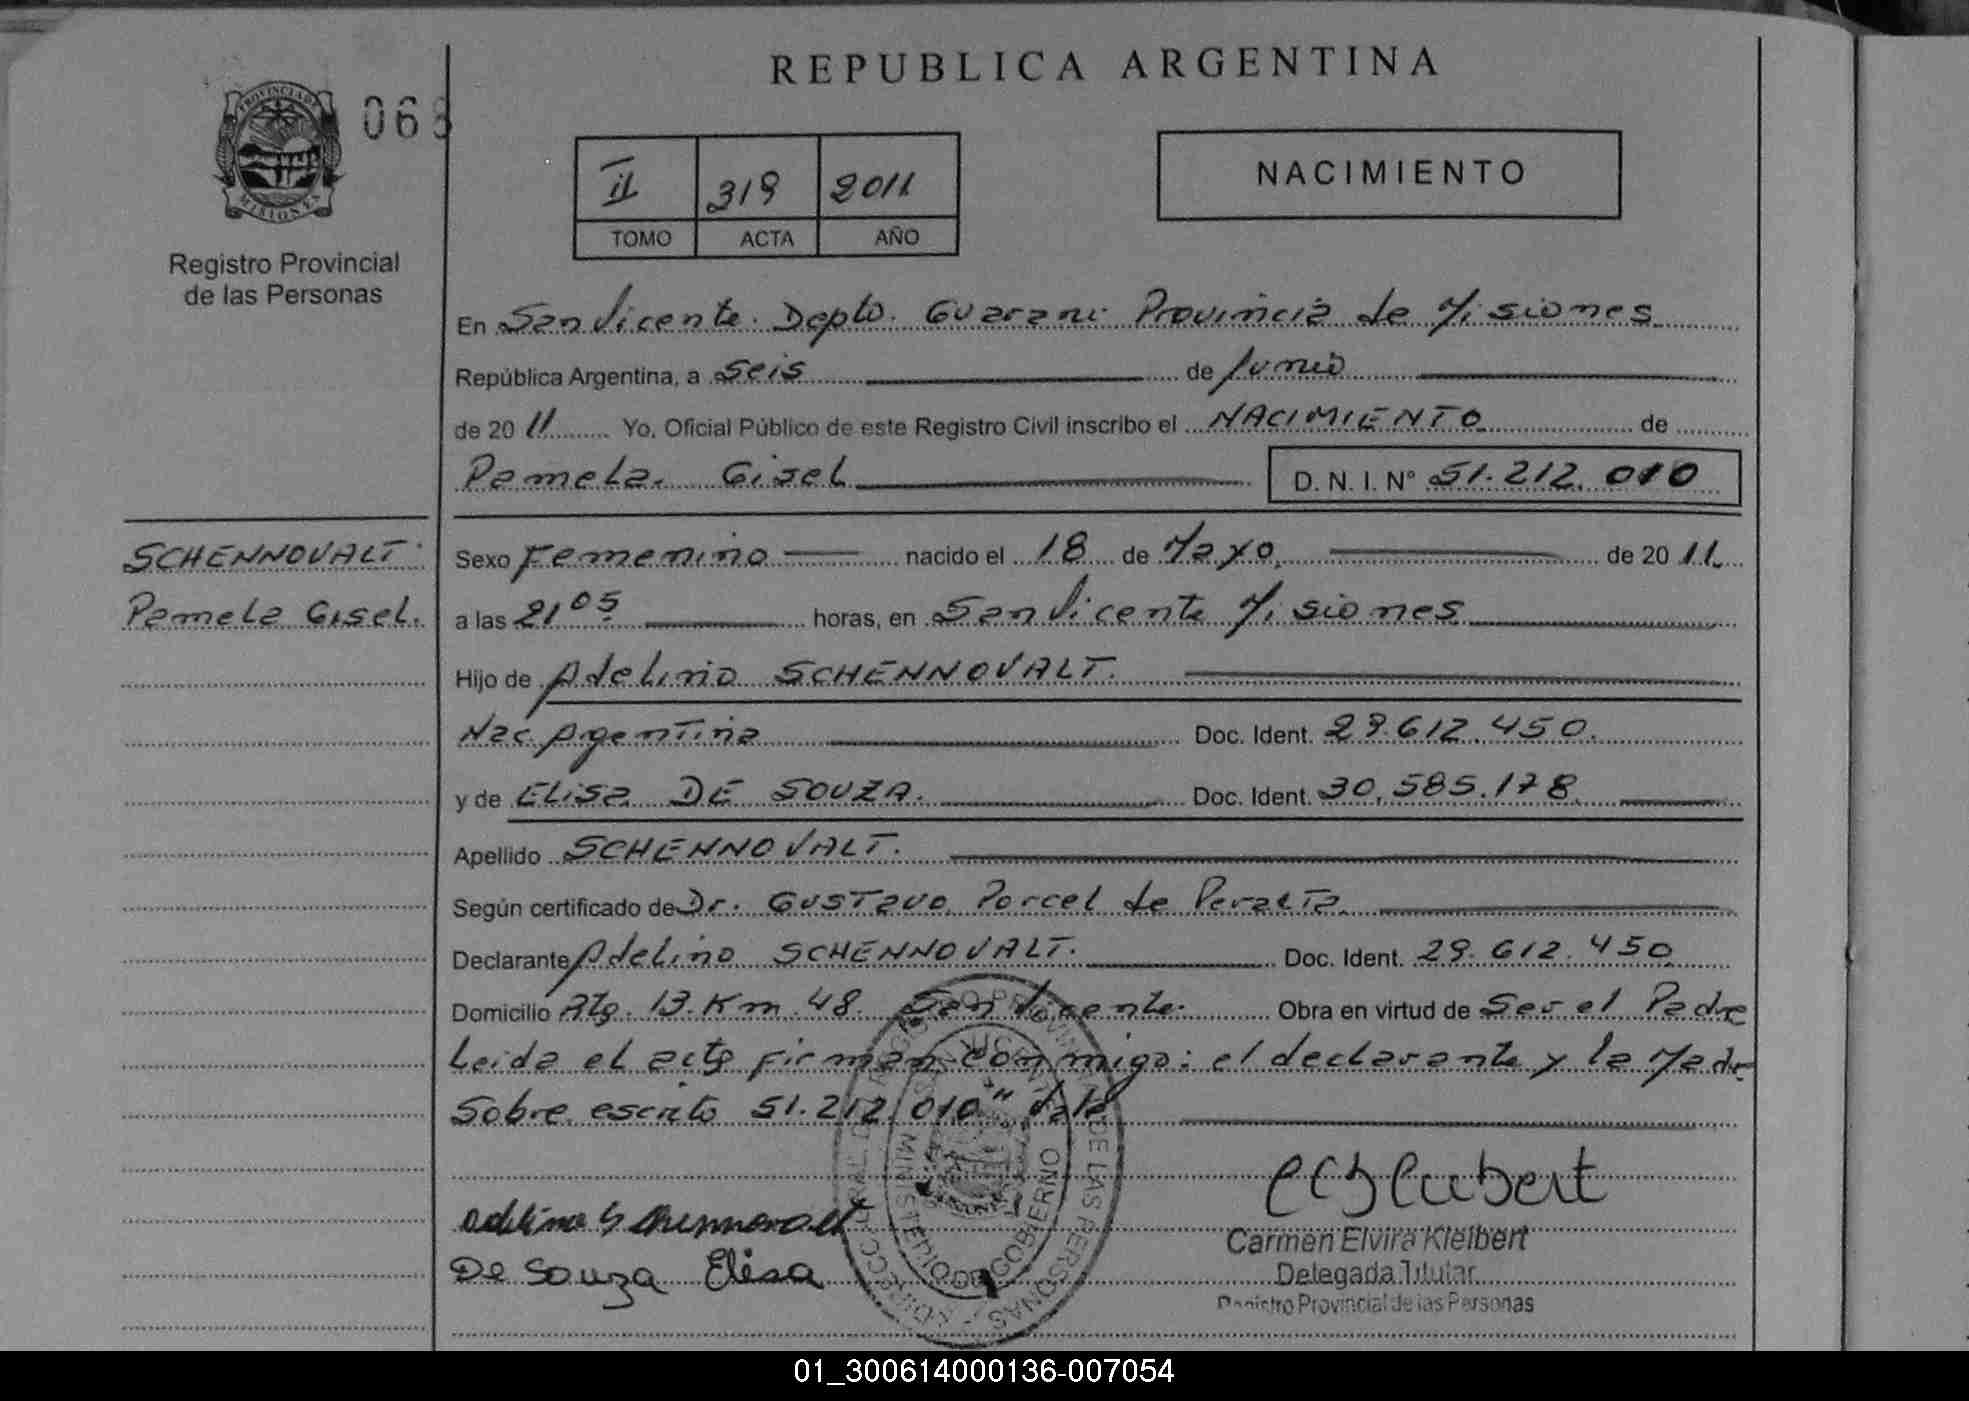 REPUBLICA ARGENTINA
PROVINCIA DE MISIONES
06
Registro Provincial
de las Personas
II 319 2011
TOMO ACTA AÑO
NACIMIENTO
En San Vicente. Depto. Guarani Provincia de Misiones
República Argentina, a seis de Junio
de 2011 Yo, Oficial Público de este Registro Civil inscribo el NACIMIENTO de
Pamela. Gisel D. N. I. Nº 51.212.010
SCHENNOVALT.
Pamela Gisel.
Sexo Femenino nacido el 18 de Mayo. de 2011.
a las 21 05 horas, en San Vicente Misiones
Hijo de Adelino SCHENNOVALT.
Nac Agentina Doc. Ident. 29.612.450.
y de Elisa DE SOUZA. Doc. Ident. 30.585.178.
Apellido SCHENNOVALT.
Según certificado de Dr. Gustavo Porcel de Peralta.
Declarante Adelino SCHENNOVALT. Doc. Ident. 29.612.450
Domicilio Rta. 13. Km. 48. San Vicente. Obra en virtud de Ser el Padre
Leida el acta firman conmigo: el declarante y la Madre
Sobre escrito 51.212.010" Vale
Adelino Schennovalt
De Souza Elisa
Carmen Elvira Kleibert
Delegada Titular
Registro Provincial de las Personas
MINISTERIO DE GOBIERNO
01_300614000136-007054